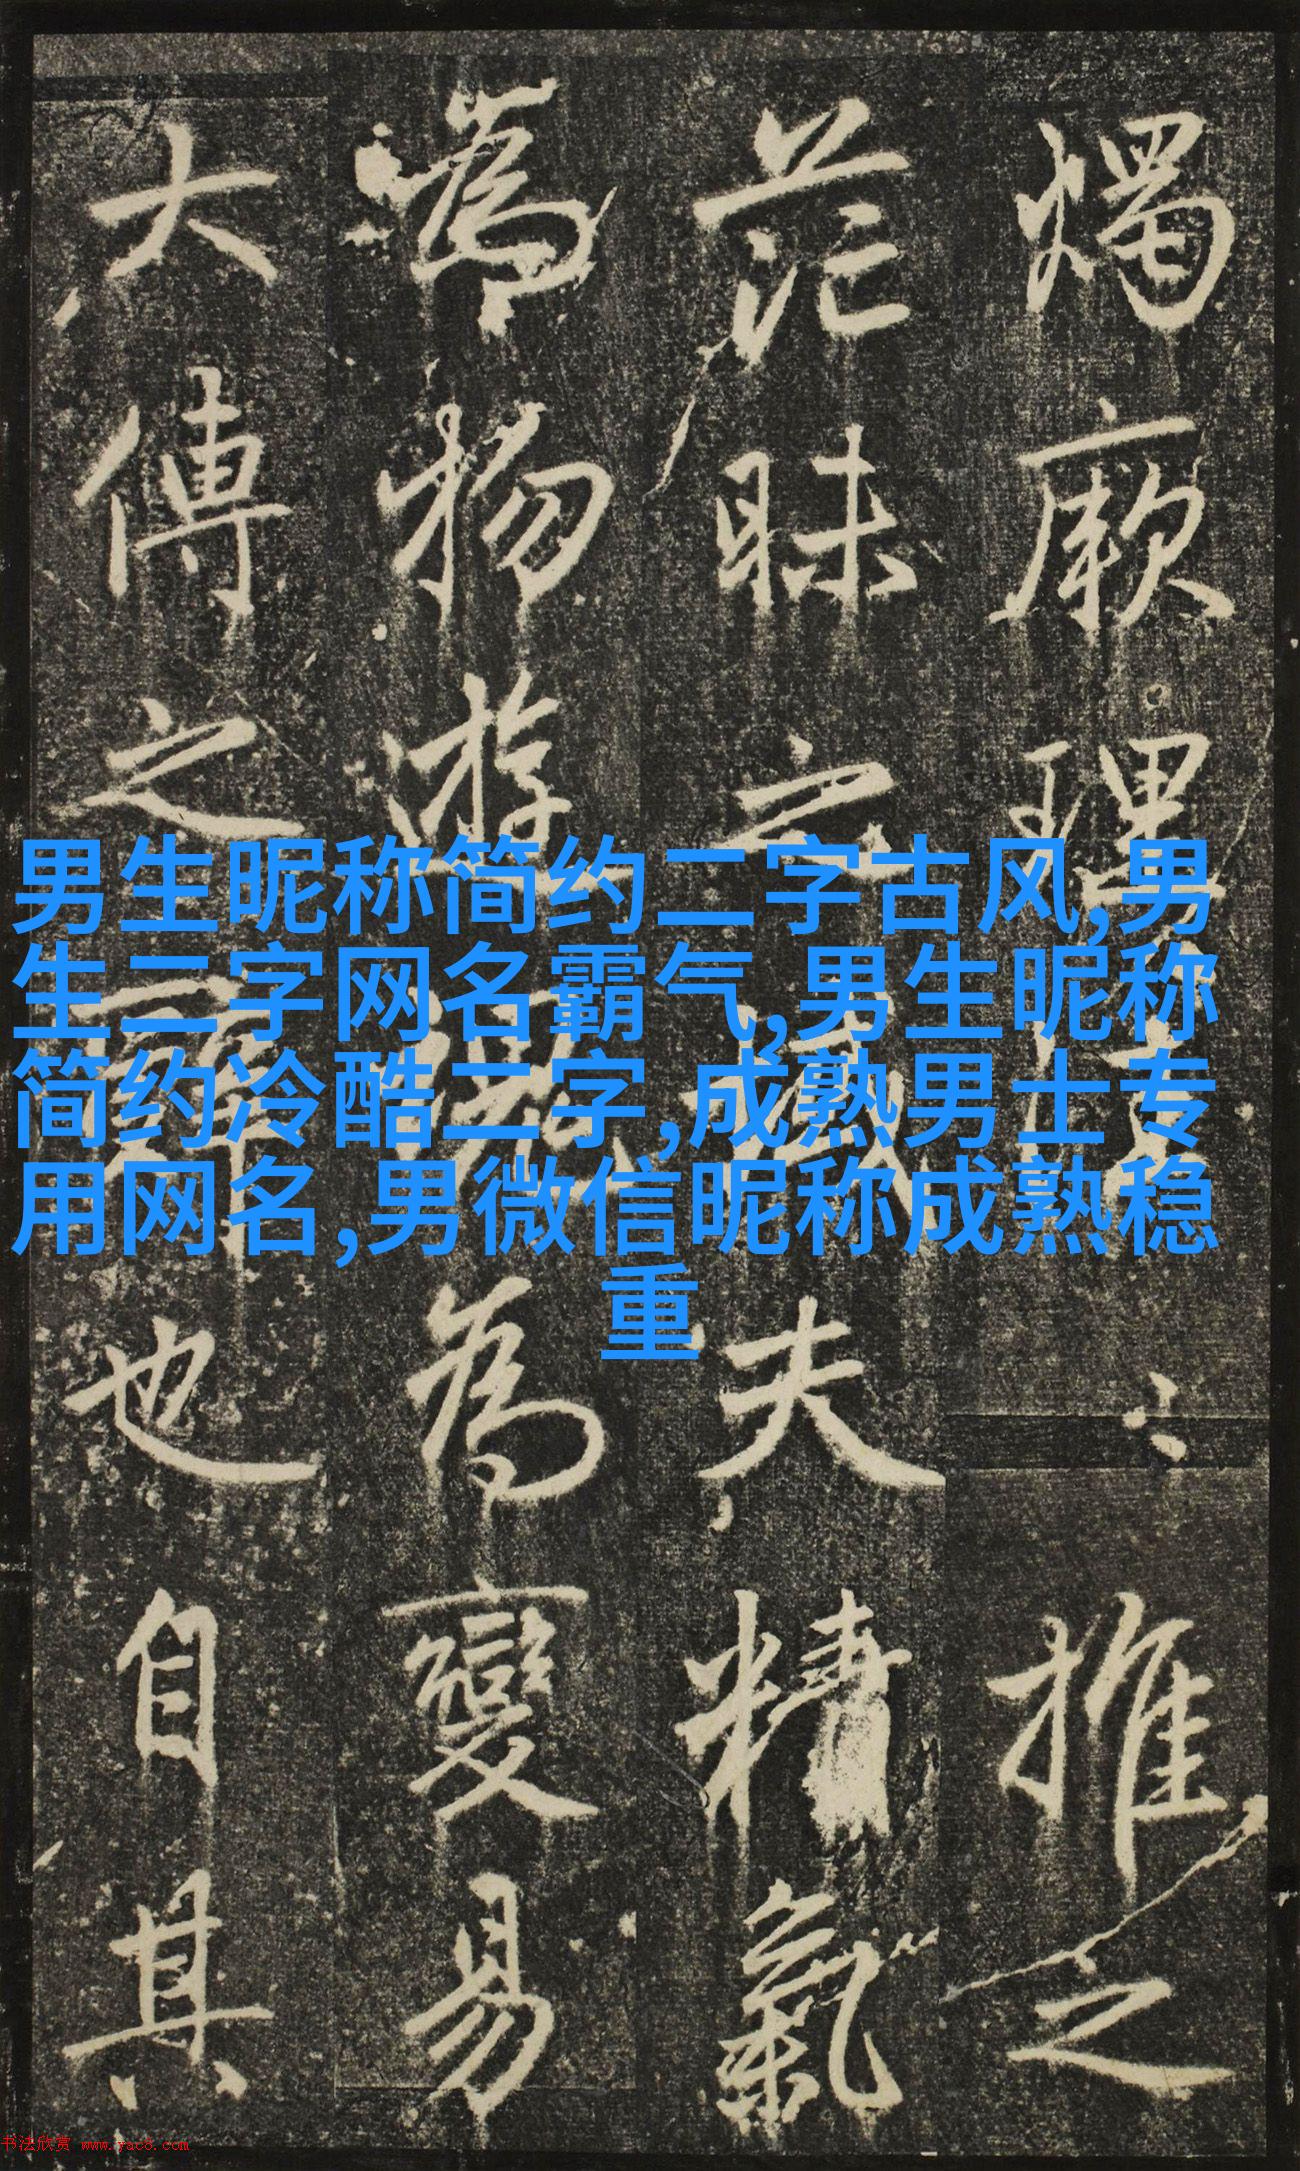 男生昵称简约二字古风,男
生二字网名霸气,男生昵称
简约冷酷二字,成熟男士专
用网名,男微信昵称成熟稳
重
燭厥理推之
茫昧之域夫精氣
為物遊魂為變易
大傳之辭也自其
书法欣赏 www.yac8.com